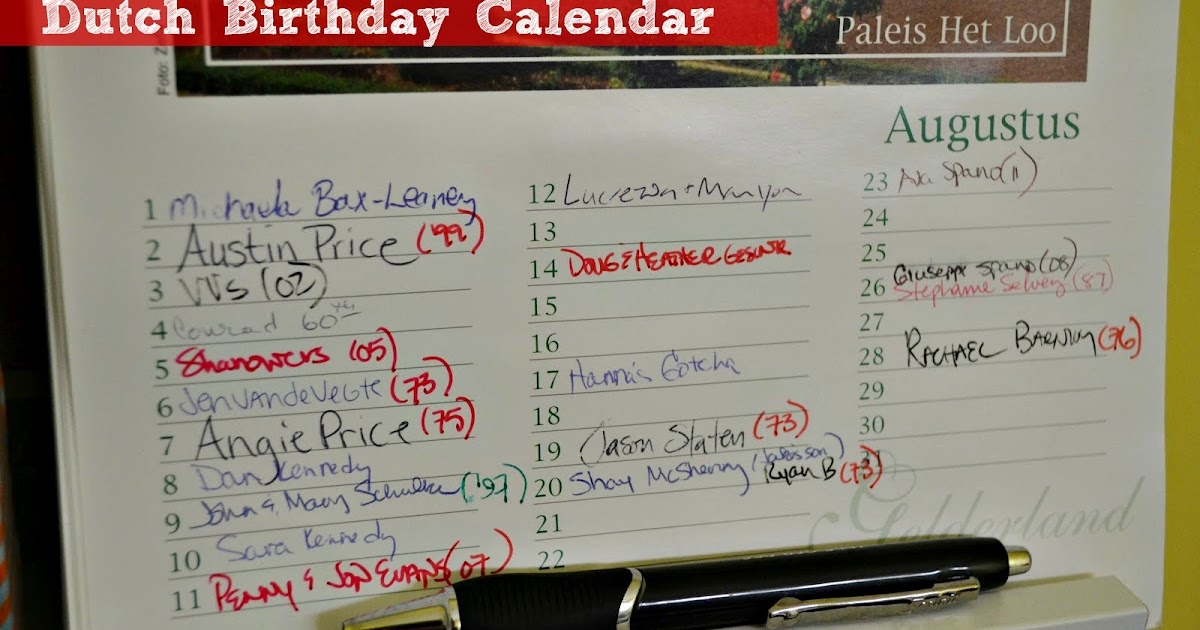 Dutch Birthday Calendar
Paleis Het Loo
Foto:
Augustus
1 Michaela Bax-Leaney
2 Austin Price ('99)
3 (02)
4 Conrad 60 yrs
5 (05)
6 Jen VandeVegte (73)
7 Angie Price (75)
8 Dan Kennedy
9 John & Mary ('97)
10 Sara Kennedy
11 Penny & Jon Evans (07)
12
13
14 Doug & Heather
15
16
17 Hanna's Gotcha
18
19 Jason Staten (73)
20 Shay McSherry
Ryan B (73)
21
22
23 Ava Spano (11)
24
25
Giuseppe Spano (08)
26 Stephanie Selvey (87)
27
28 Rachael (76)
29
30
Gelderland